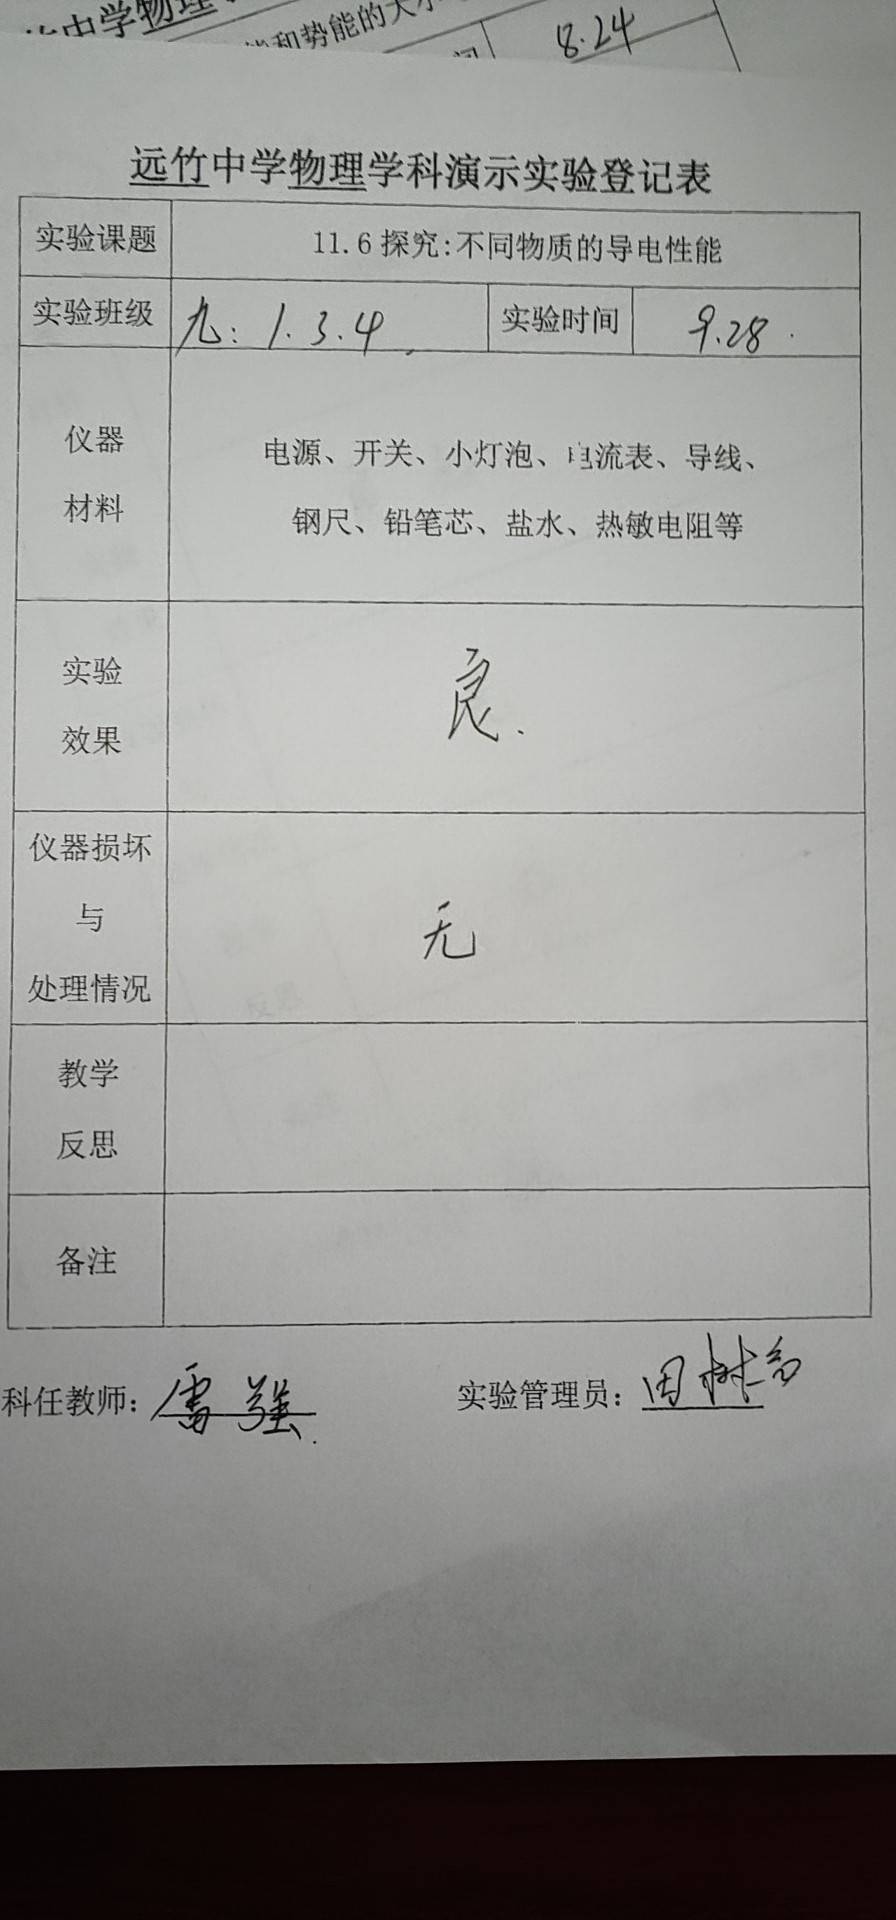 中学物理
和势能的大小
8.24
远竹中学物理学科演示实验登记表
实验课题
11.6探究:不同物质的导电性能
实验班级
九: 1.3.4
实验时间
9.28.
仪器
材料
电源、开关、小灯泡、电流表、导线、
钢尺、铅笔芯、盐水、热敏电阻等
实验
效果
良.
仪器损坏
与
处理情况
无
教学
反思
备注
科任教师: 雷强
实验管理员: 田树